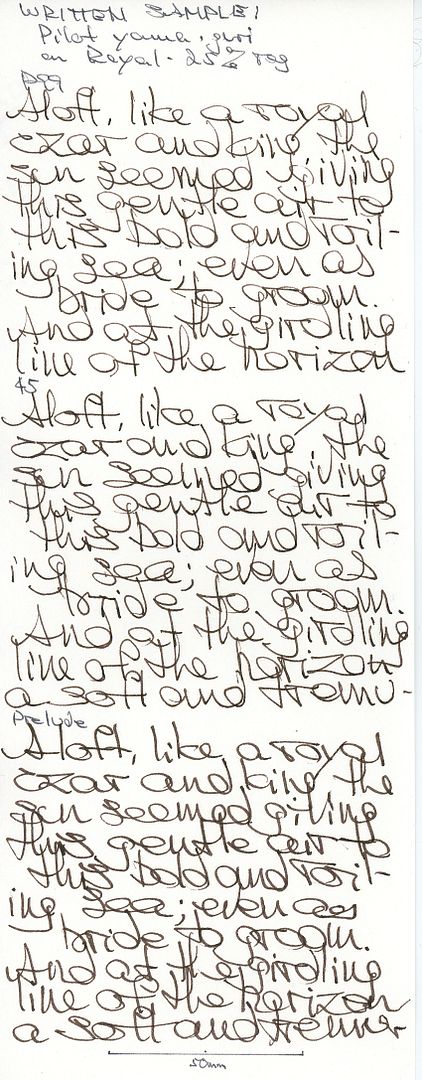 WRITTEN SAMPLE!
Pilot yama.guri
on Rexal. 25% rag
P99
Aloft, like a royal
czar and king, the
sun seemed giving
this gentle air to
this bold and roll-
ing sea; even as
bride to groom.
And at the girdling
line of the horizon
45
Aloft, like a royal
czar and king, the
sun seemed giving
this gentle air to
this bold and roll-
ing sea; even as
bride to groom.
And at the girdling
line of the horizon
a soft and tremu-
Prelude
Aloft, like a royal
czar and king, the
sun seemed giving
this gentle air to
this bold and roll-
ing sea; even as
bride to groom.
And at the girdling
line of the horizon
a soft and tremu-
50mm